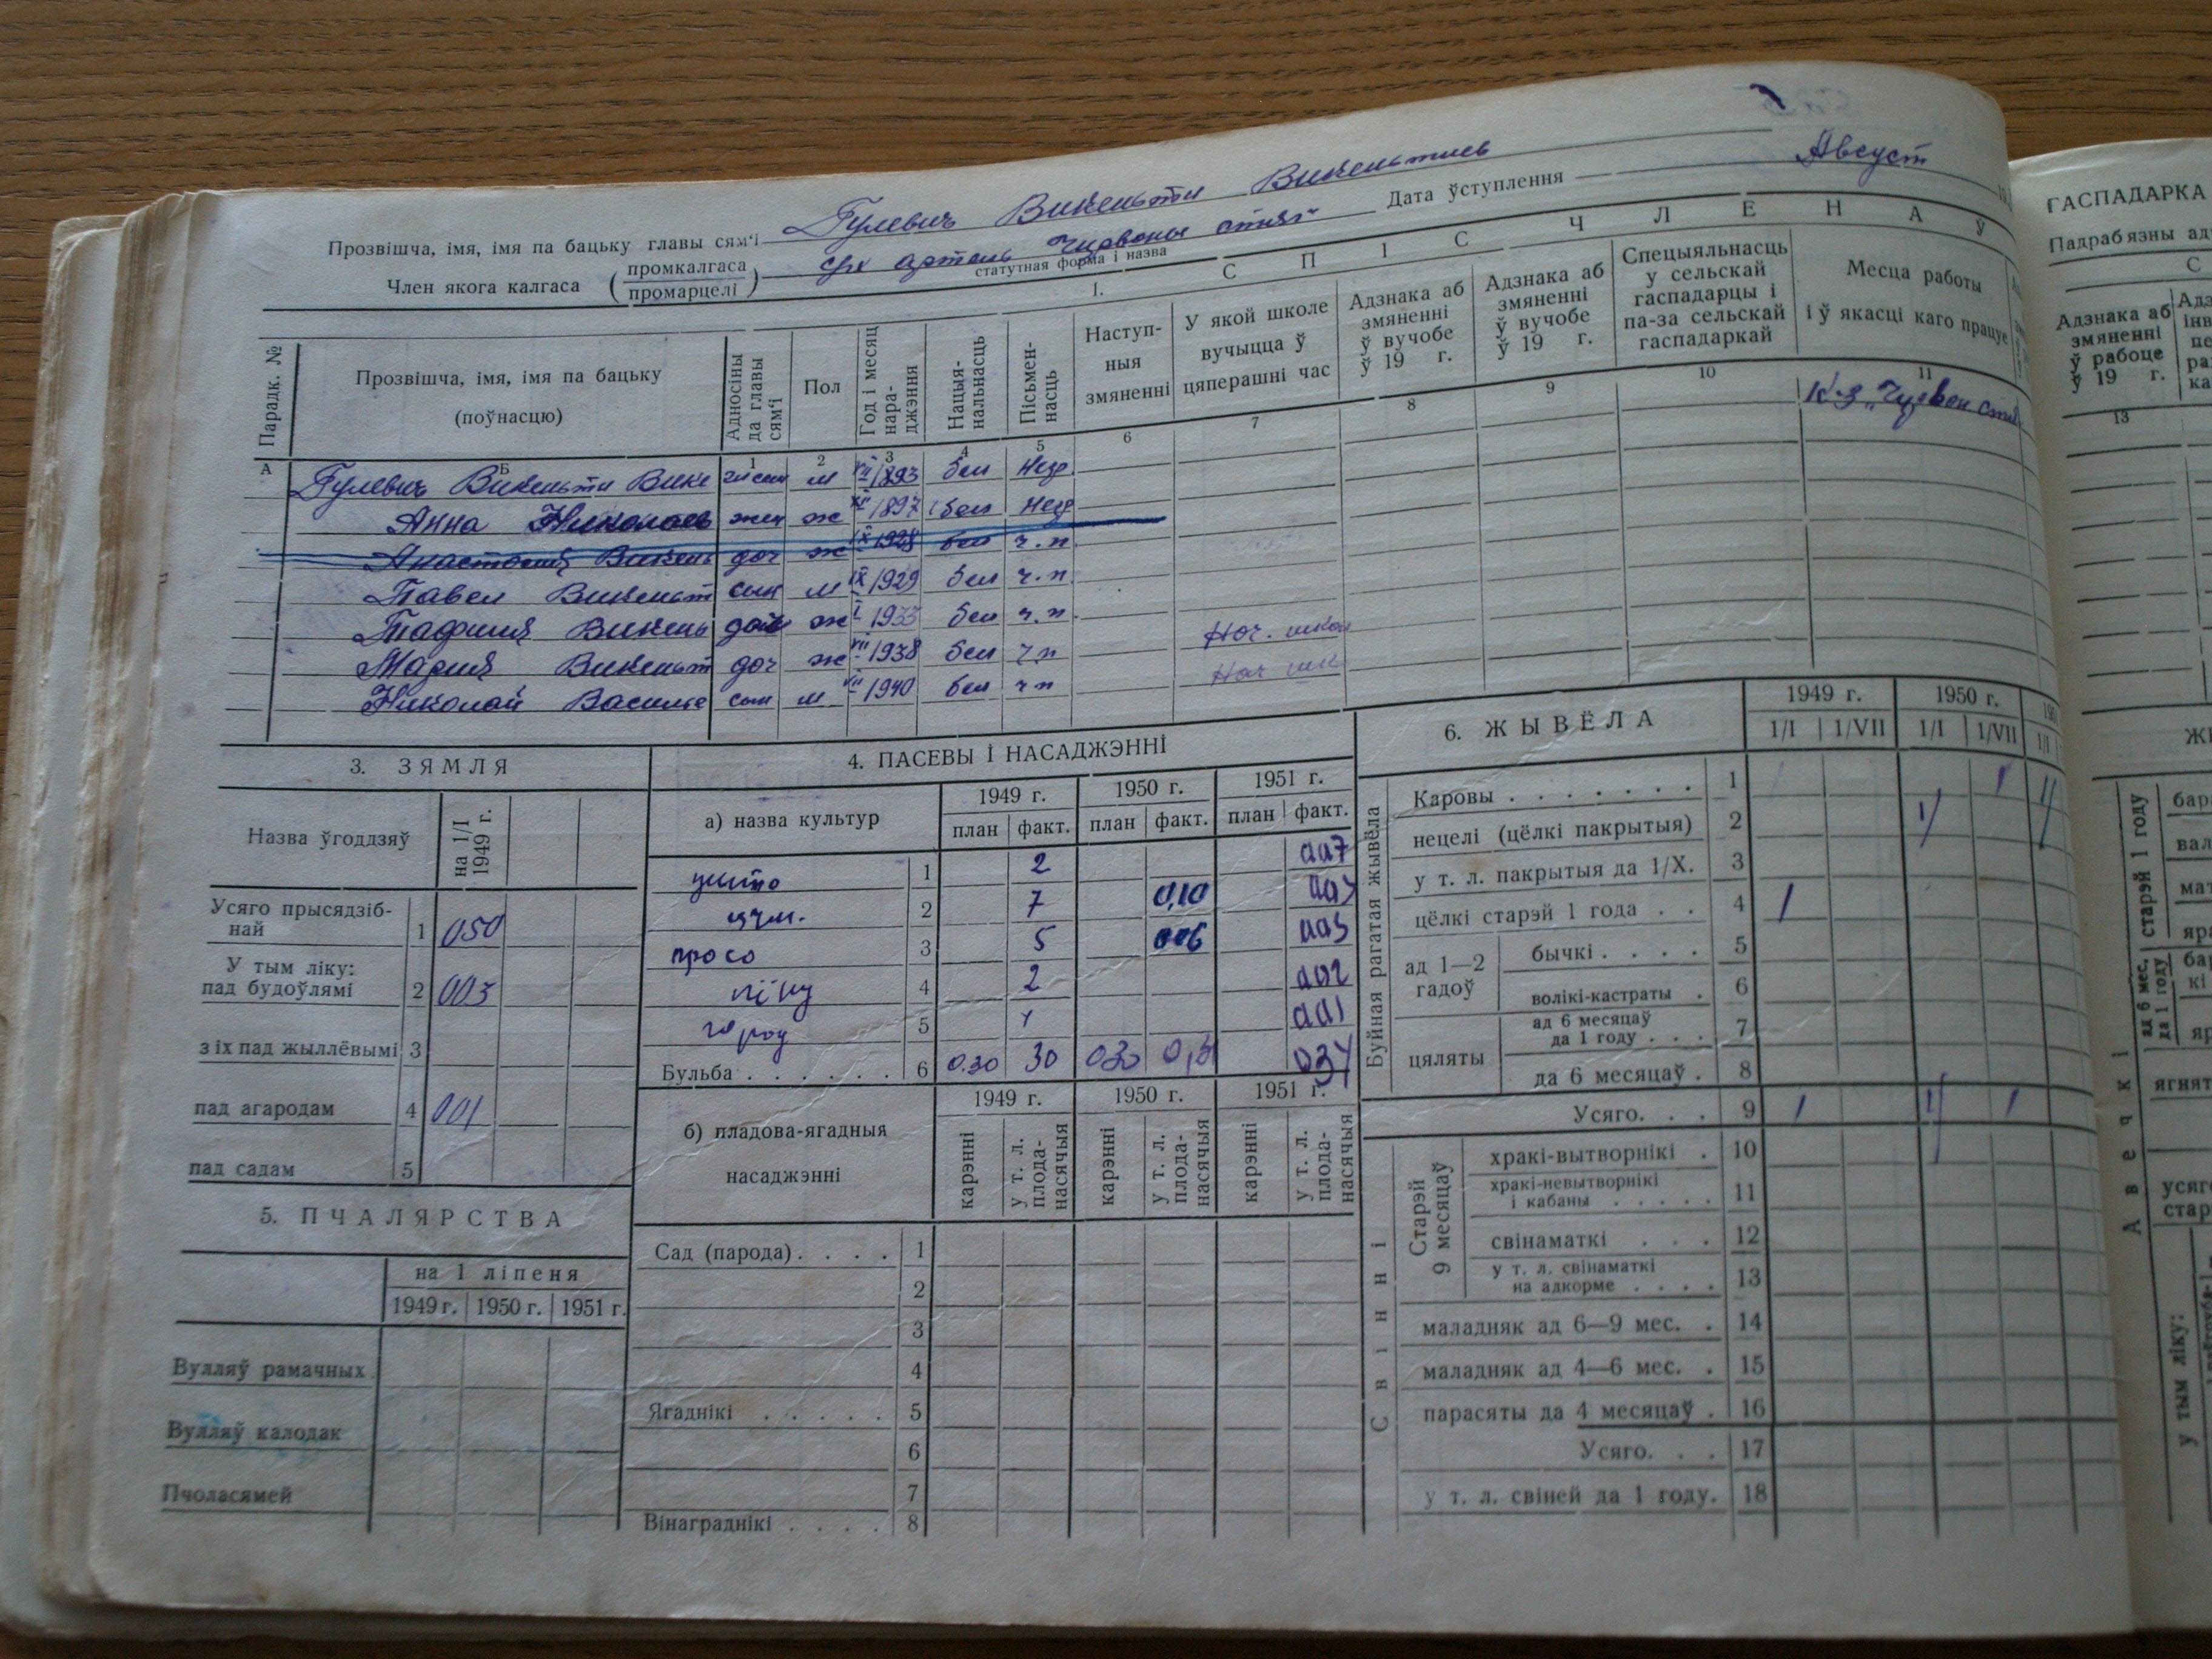 Прозвішча, імя, імя па бацьку главы сям'і Гулевич Викеньти Викеньтиев
Член якога калгаса (промкалгаса промарцелі) с/х артель
статутная форма і назва
Дата ўступлення Август
1. СПІС ЧЛЕНАЎ
Парадк. № Прозвішча, імя, імя па бацьку (поўнасцю) Адносіны да главы сям'і Пол Год і месяц нараджэння Нацыянальнасць Пісьменнасць Наступныя змяненні У якой школе вучыцца ў цяперашні час Адзнака аб змяненні ў вучобе ў 19 г. Адзнака аб змяненні ў вучобе ў 19 г. Спецыяльнасць у сельскай гаспадарцы і па-за сельскай гаспадаркай Месца работы і ў якасці каго працуе
А Б 1 2 3 4 5 6 7 8 9 10 11
Гулевич Викеньти Вике м VII 1893 бел Негр
Анна Николаев жен ж 1897 бел Негр
Анастасия Викень доч ж IX 1928 бел ч.п
Павел Викеньт сын м IX 1929 бел ч.п
Викень ж I 1933 бел ч.п
Мария Викеньт доч ж VII 1938 бел ч п Нач. школ
Николай Василье сын м VII 1940 бел ч п Нач шк
3. ЗЯМЛЯ
Назва ўгоддзяў на 1/I 1949 г.
Усяго прысядзібнай 1 050
У тым ліку: пад будоўлямі 2 003
з іх пад жыллёвымі 3
пад агародам 4 001
пад садам 5
5. ПЧАЛЯРСТВА
на 1 ліпеня
1949 г. 1950 г. 1951 г.
Вулляў рамачных
Вулляў калодак
Пчоласямей
4. ПАСЕВЫ І НАСАДЖЭННІ
а) назва культур 1949 г. 1950 г. 1951 г.
план факт. план факт. план факт.
1 2
ячм. 2 7 0,10
просо 3 5 006
4 2
город 5
Бульба 6 0.30 30 030
б) пладова-ягадныя насаджэнні 1949 г. 1950 г. 1951 г.
карэнні у т. л. плоданасячыя карэнні у т. л. плоданасячыя карэнні у т. л. плоданасячыя
Сад (парода) 1
2
3
4
Ягаднікі 5
6
7
Вінаграднікі 8
6. ЖЫВЁЛА 1949 г. 1950 г.
1/I 1/VII 1/I 1/VII 1/I
Буйная рагатая жывёла
Каровы 1 1
нецелі (цёлкі пакрытыя) 2
у т. л. пакрытыя да 1/X. 3
цёлкі старэй 1 года 4 1
ад 1—2 гадоў бычкі 5
волікі-кастраты 6
цяляты ад 6 месяцаў да 1 году 7
да 6 месяцаў 8
Усяго 9 1 1
Свінні
Старэй 9 месяцаў
хракі-вытворнікі 10
хракі-невытворнікі і кабаны 11
свінаматкі 12
у т. л. свінаматкі на адкорме 13
маладняк ад 6—9 мес. 14
маладняк ад 4—6 мес. 15
парасяты да 4 месяцаў 16
Усяго 17
у т. л. свіней да 1 году. 18
ГАСПАДАРКА
Адзнака аб змяненні ў рабоце ў 19 г.
13
старэй 1 году
ад 6 мес. да 1 году
Авечкі
у тым ліку: